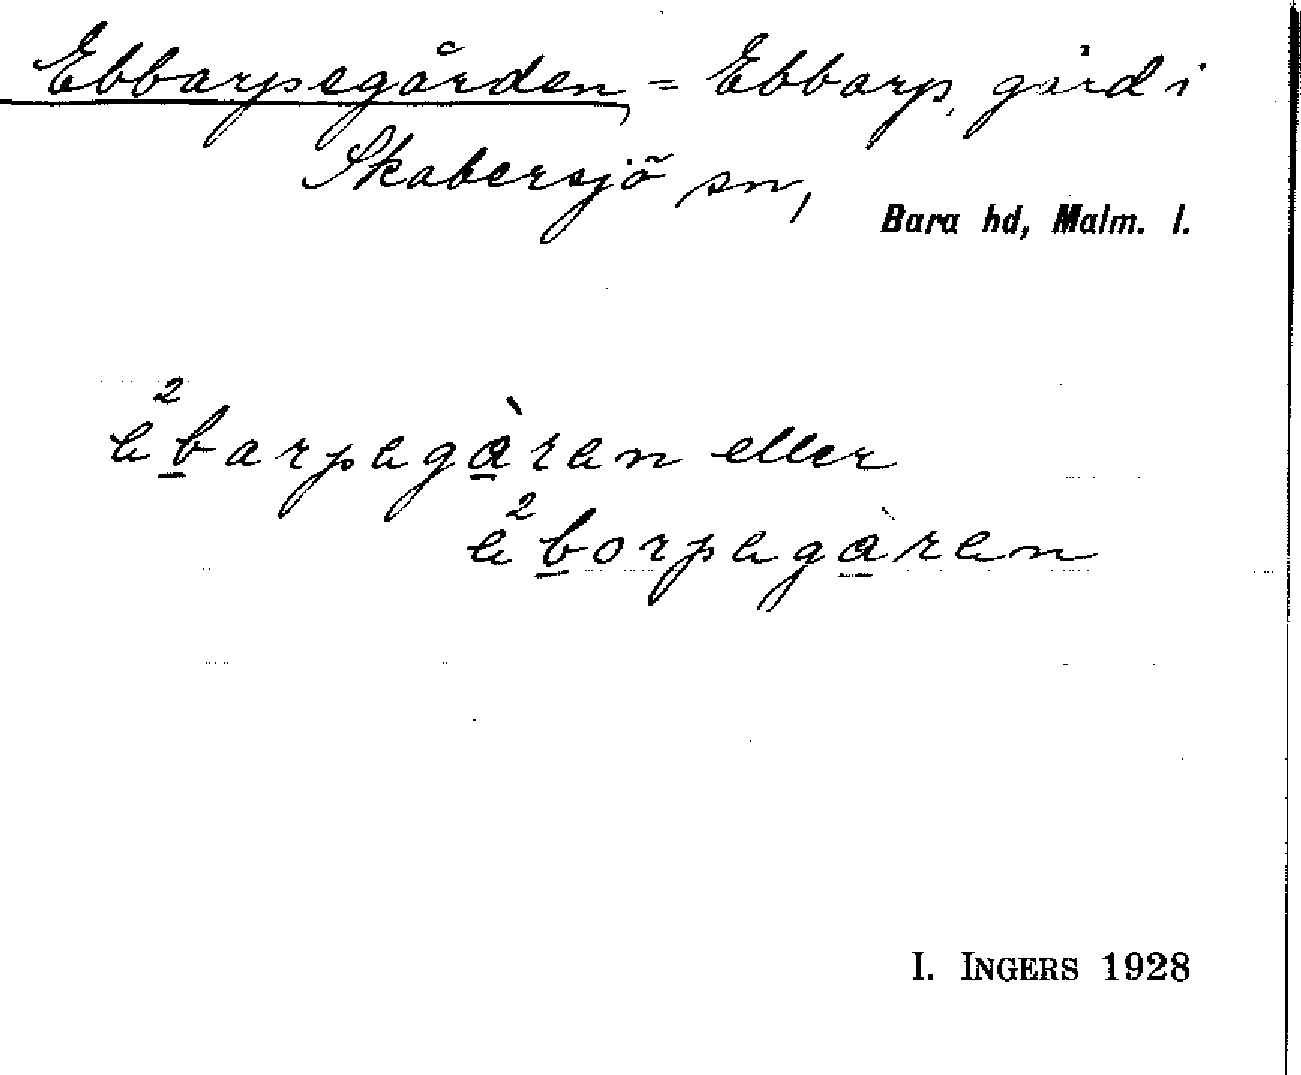 Ebbarpegården = Ebbarp, gård i
Skabersjö sn,
Bara hd, Malm. l.
e²barpegàren eller
e²borpegàren
I. INGERS 1928